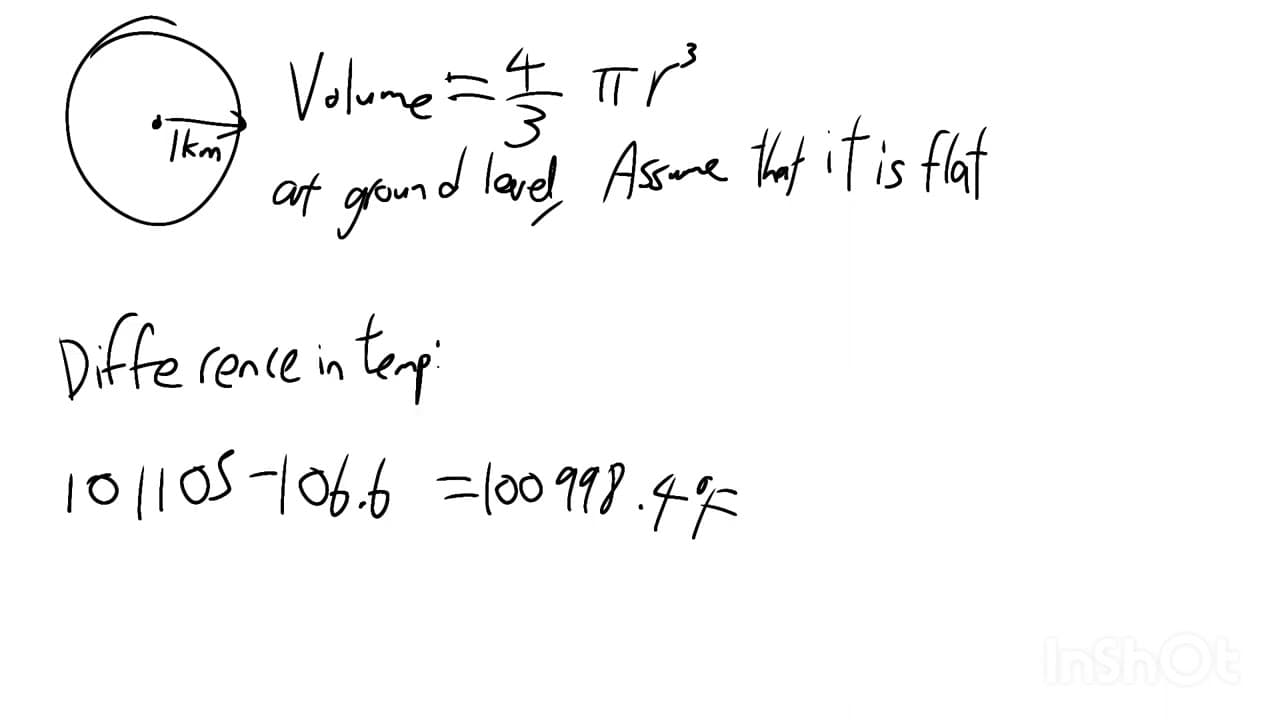 Volume = 4/3 πr³
1km
at ground level, Assume that it is flat
Difference in temp:
101105 - 106.6 = 100998.4°F
InShOt